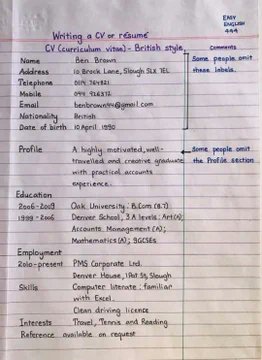 EASY
ENGLISH
444
Writing a CV or résumé
CV (curriculum vitae) - British style
Comments
Name Ben Brown
Some people omit
Address 10 Brock Lane, Slough SLX 7EL
these labels.
Telephone
Mobile
Email benbrown44@gmail.com
Nationality British
Date of birth 10 April 1990
Profile A highly motivated, well-
Some people omit
travelled and creative graduate
the Profile section
with practical accounts
experience.
Education
2006-2009 Oak University: B.Com (B.7)
1999-2006 Denver School, 3 A levels: Art(A);
Accounts Management (A);
Mathematics (A); 9GCSEs
Employment
2010-present PMS Corporate Ltd.
Denver House, 1 Pat. St, Slough
Skills Computer literate: familiar
with Excel.
Clean driving licence
Interests Travel, Tennis and Reading
Reference available on request